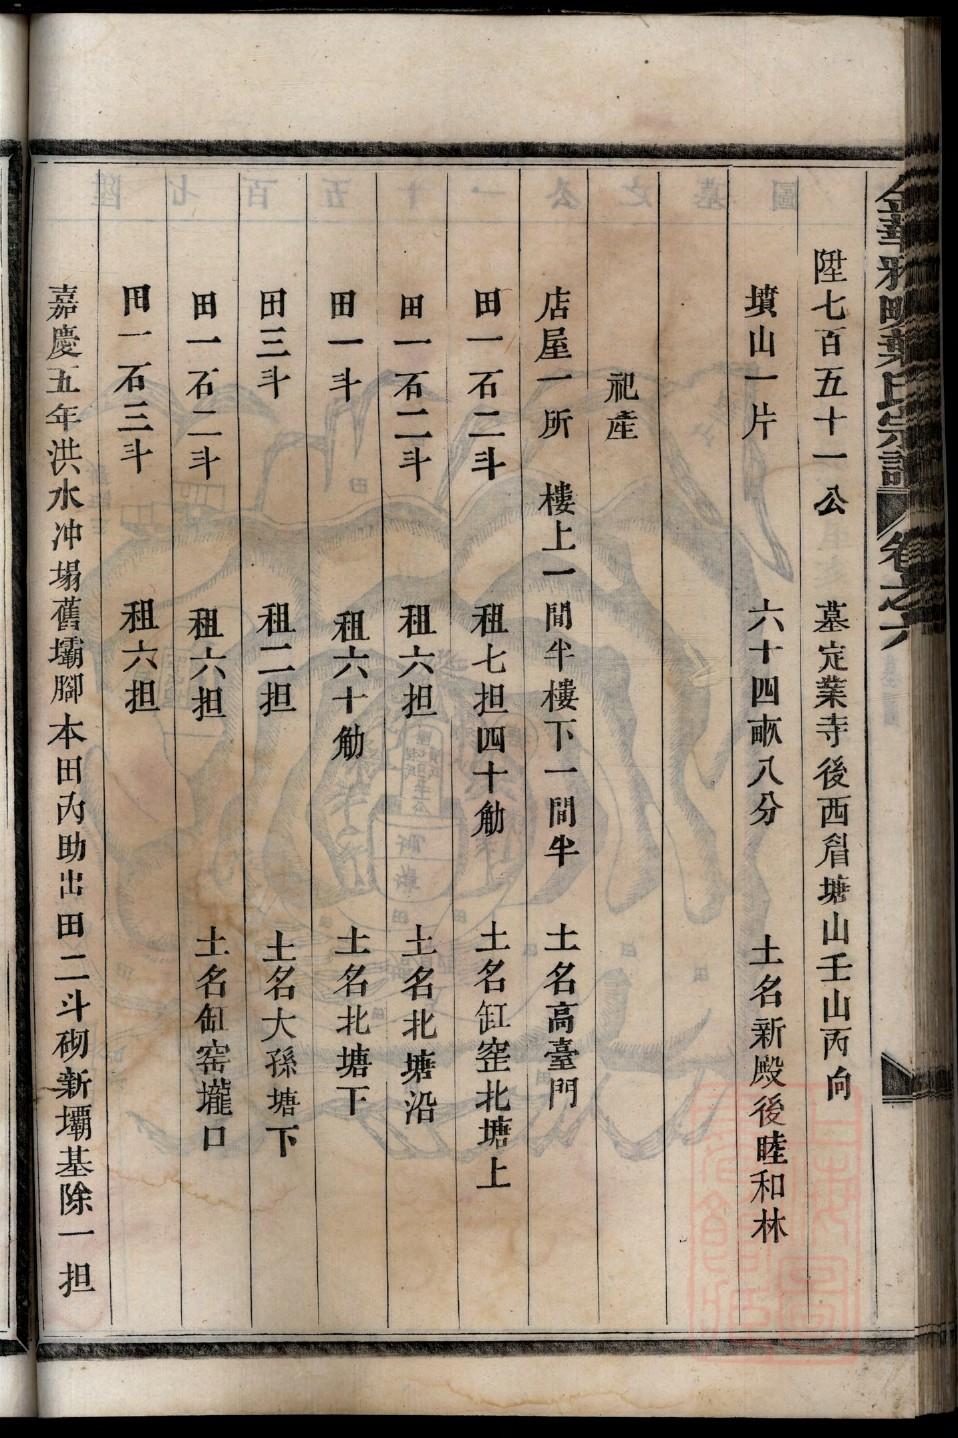 陞七百五十一公　墓定業寺後西眉塘山壬山丙向
墳山一片　六十四畝八分　土名新殿後睦和林
祀產
店屋一所　樓上一間半樓下一間半　土名高臺門
田一石二斗　租七担四十觔　土名缸窑北塘上
田一石二斗　租六担　土名北塘沿
田一斗　租六十觔　土名北塘下
田三斗　租二担　土名大孫塘下
田一石二斗　租六担　土名缸窑壠口
田一石三斗　租六担
嘉慶五年洪水冲塌舊壩腳本田內助出田二斗砌新壩基除一担